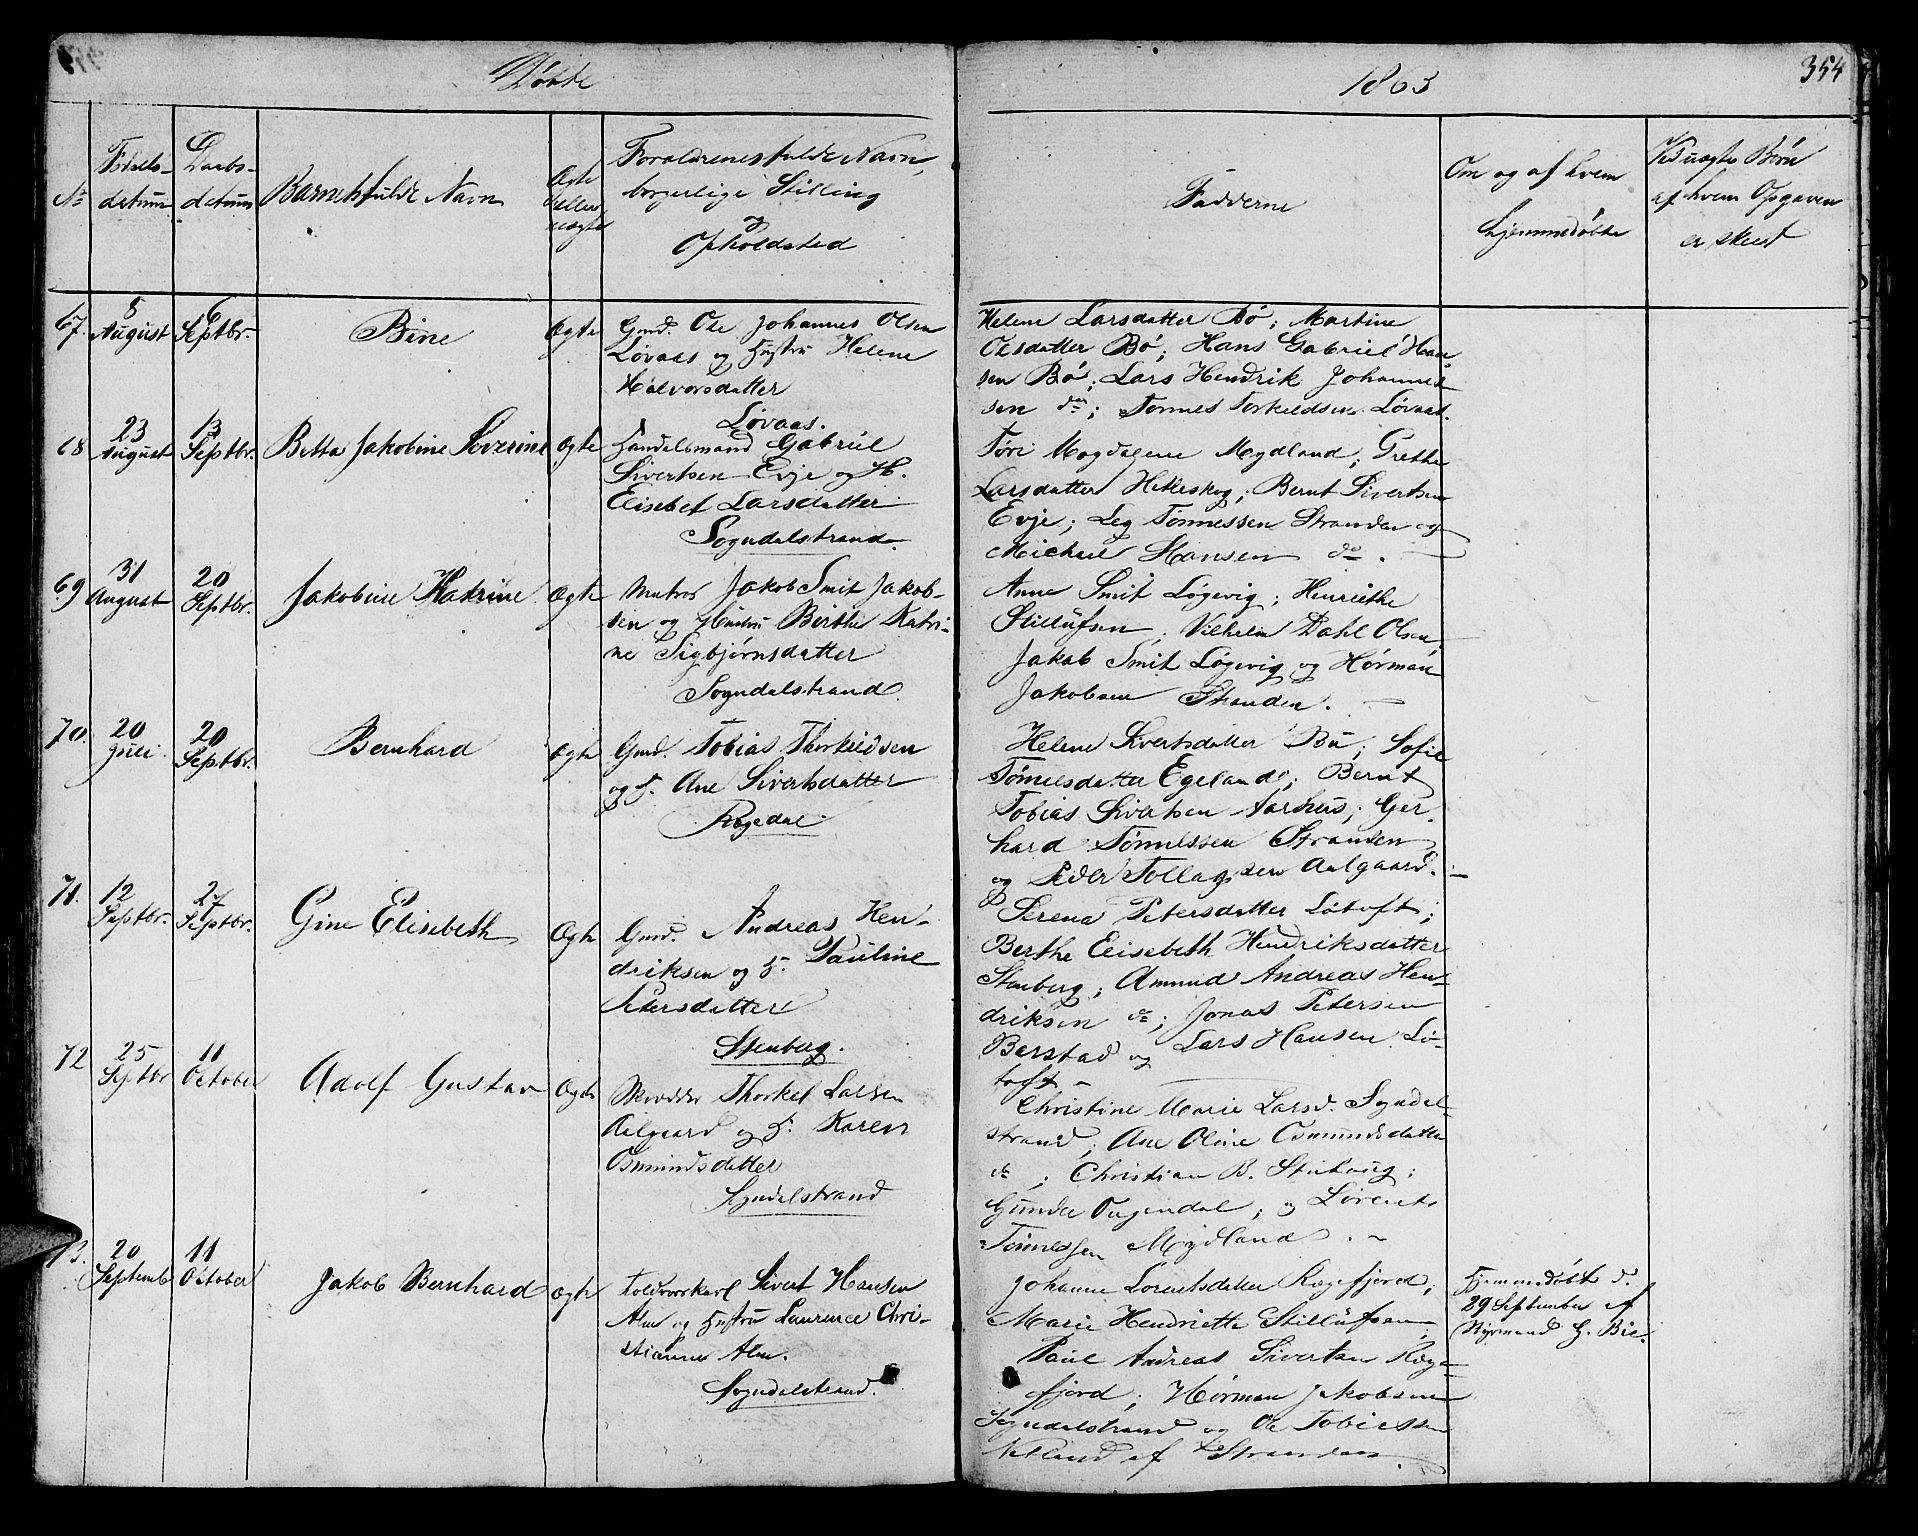 Døbte
1863
354
No
Fødsels-
datum
Daabs-
datum
Barnets fulde Navn
Ægte
eller
uægte
Forældrenes fulde Navn,
borgerlige Stilling
og
Opholdsted
Fadderne
Om og af hvem
hjemmedøbte
Ved uægte Børn
af hvem Opgaven
er skeet
67.
8 August
6 Septbr.
Bine
Ægte
Gmd. Ole Johannes Olsen
Løvaas og Hustru Helene
Halvorsdatter
Løvaas.
Helene Larsdatter Bø; Martine
Olsdatter Bø; Hans Gabriel Han
sen Bø; Lars Hendrik Johannes
sen do; Tønnes Torkeldsen Løvaas.
68
23 August
13 Septbr.
Betta Jakobine Severine
Ægte
Handelsmand Gabriel
Sivertsen Evje og H.
Elisebet Larsdatter
Sogndalstrand.
Tøri Magdalene Mydland; Grethe
Larsdatter Hetleskog; Bernt Sivertsen
Evje; Leg Tønnessen Stranden og
Michael Hansen do.
69
31 August
20 Septbr.
Jakobine Katrine
Ægte
Matros Jakob Smit Jakob-
sen og Hustru Birthe Katri-
ne Sigbjørnsdatter
Sogndalstrand.
Anne Smit Løgevig; Henriethe
Stillufsen; Vilhelm Dahl Olsen
Jakob Smit Løgevig og Hórman
Jakobsen Stranden.
70.
20 Juli.
20 Septbr.
Bernhard
Ægte
Gmd. Tobias Thorkildsen
og H. Ane Sivertsdatter
Rægedal
Helene Sivertsdatter Bu; Sofie
Tønnesdatter Egeland; Bernt
Tobias Sivertsen Aarhus; Ger-
hard Tønnessen Stranden
og Peder Tollagsen Aalgaard.
71.
12 Septbr.
27 Septbr.
Gine Elisebeth
Ægte
Gmd. Andreas Hen-
driksen og H. Pauline
Petersdatter
Stenberg.
Serena Petersdatter Løtoft;
Berthe Elisebeth Hendriksdatter
Stenberg; Amund Andreas Hen-
driksen do; Jonas Petersen
Barstad og Lars Hansen Lø-
toft -
72
25 Septbr
11 October
Adolf Gustav
Ægte
Skrædder Thorkel Larsen
Aalgaard og H. Karen
Osmundsdatter
Sogndalstrand
Christine Marie Larsd. Sogndal-
strand; Ane Oline Osmundsdatter
do; Christian B. Stenhaug;
Gunder Ougendal; og Lorents
Tønnessen Mydland.
73.
20 Septemb
11 October
Jakob Bernhard
Ægte
Toldvoxkarl Sivert Hansen
Alm og Hustru Laurence Chri-
stianne Alm.
Sogndalstrand.
Johanne Lorentsdatter Rægefjord;
Marie Hendriette Stillufsen;
Paul Andreas Sivertsen Ræge-
fjord; Hórman Jakobsen
Sogndalstrand og Ole Tobiessen
Netland af Stranden.
Hjemmedøbt d.
29 September af
Styrmand H. Bie.